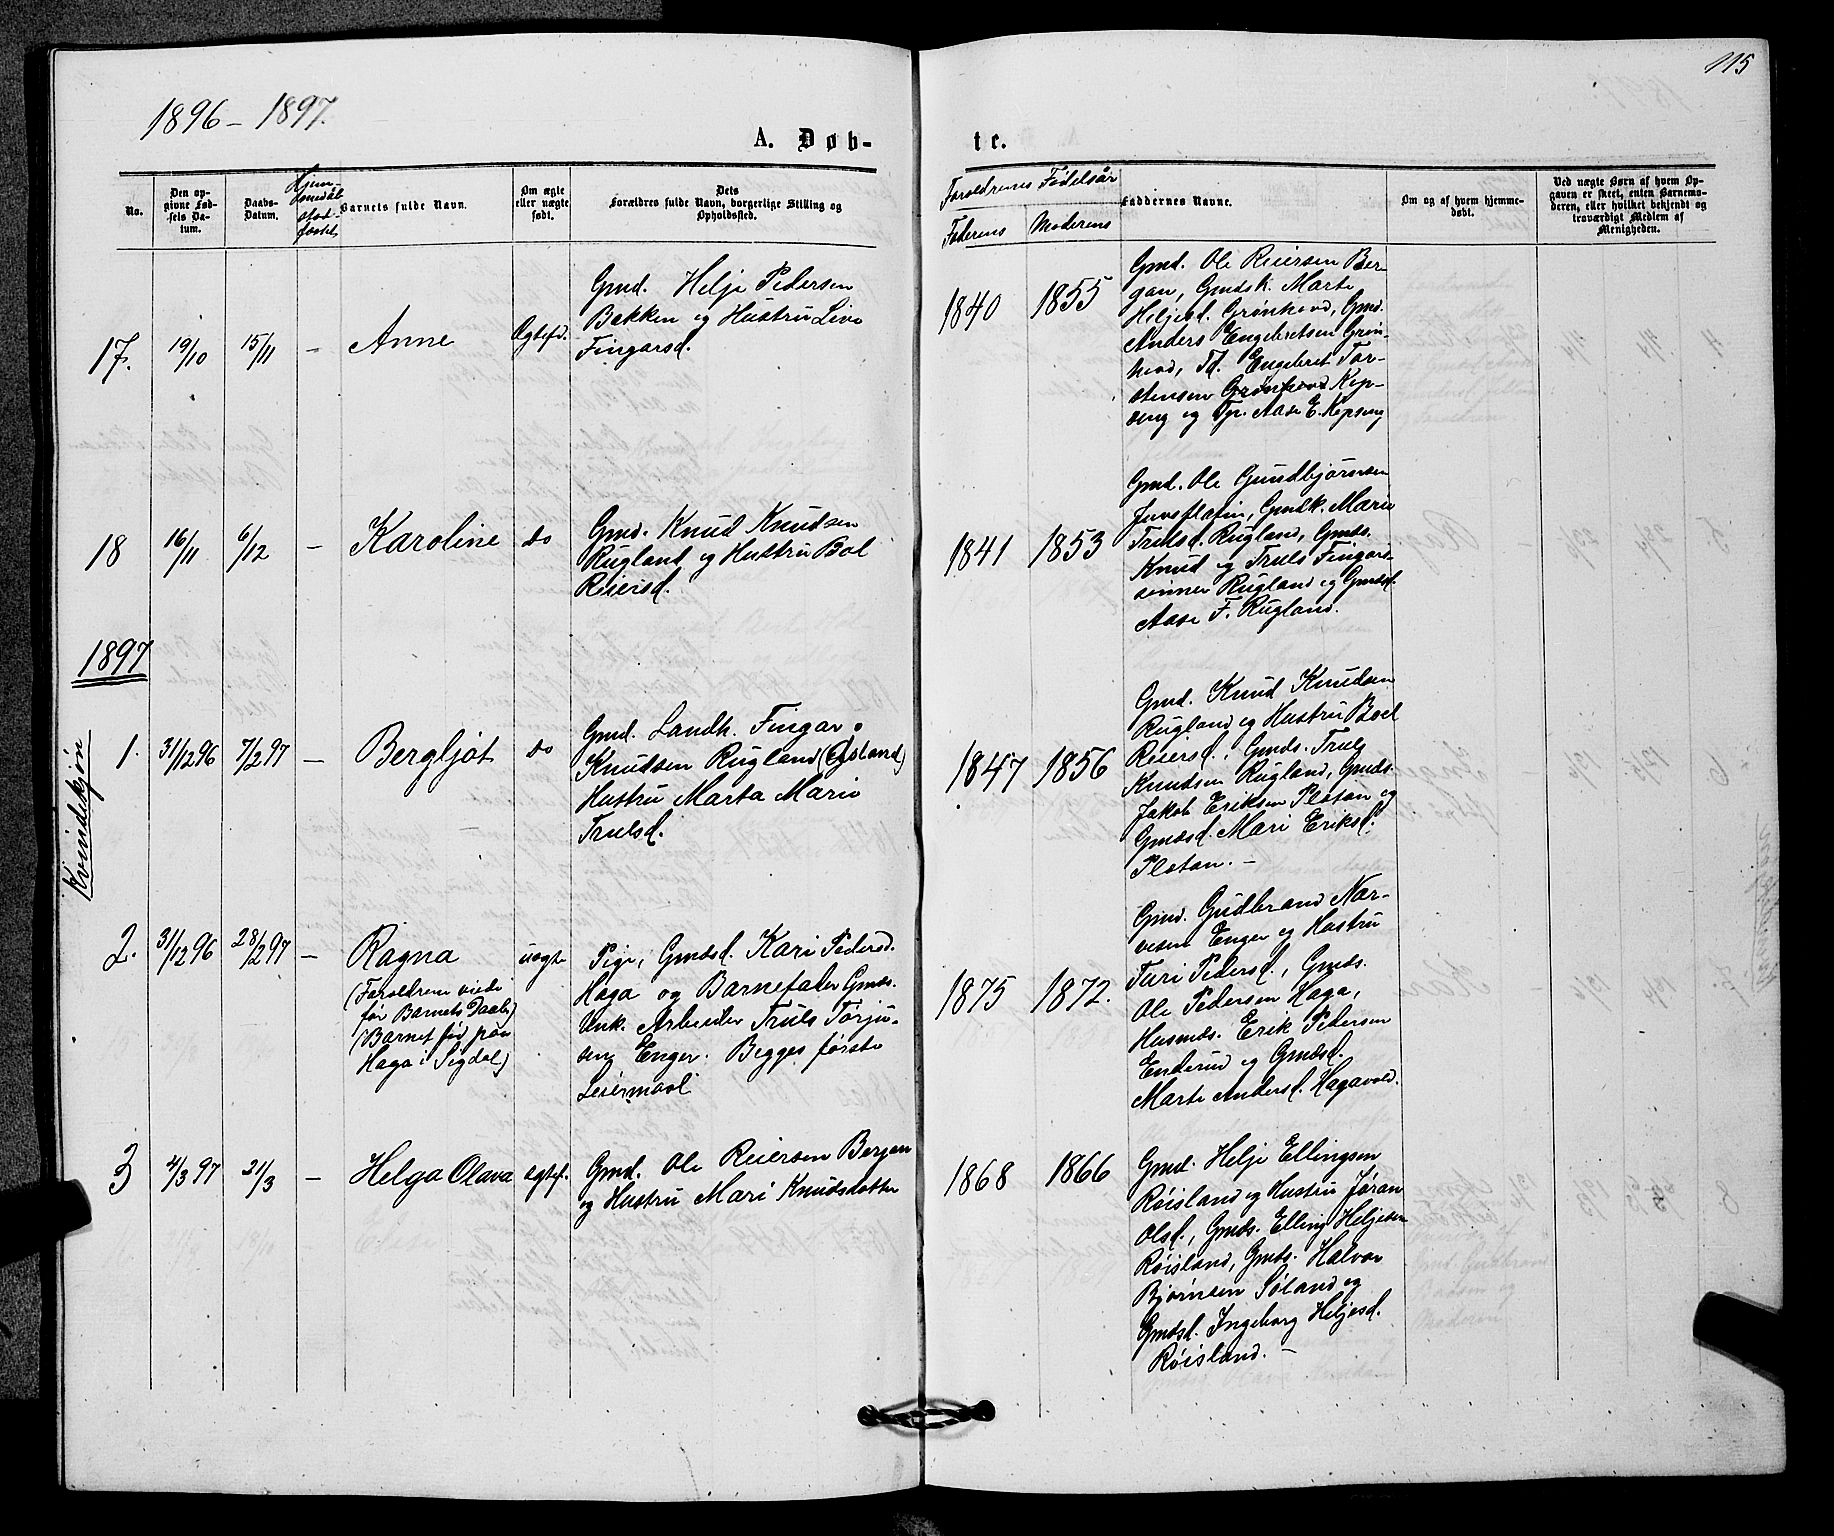 115
1896 – 1897.
A. Døb-
te.
No.
Den op-
givne Fød-
sels Da-
tum.
Daabs-
Datum.
Barnets fulde Navn.
Om ægte
eller uægte
født.
Dets
Forældres fulde Navn, borgerlige Stilling og
Opholdssted.
Forældrenes Fødselsår
Faderens
Moderens
Faddernes Navne.
Om og af hvem hjemme-
døbt.
Ved uægte Børn af hvem Op-
gaven er skeet, enten Barnemo-
deren, eller hvilket bekjendt og
troværdigt Medlem af
Menigheden.
17.
19/10
15/11
–
Anne
Ægtefd.
Gmd. Helje Pedersen
Bakken og Hustru Live
Fingarsd.
1840
1855
Gmd. Ole Reiersen Ber-
gan, Gmdsk. Marte
Heljesd. Grønhovd, Gmds.
Anders Engebretsen Grøn-
hovd, Td. Engebret Tor-
stensen Grønhovd Kop-
seng og Tp. Aase E. Kopseng
18
16/11
6/12
–
Karoline
do
Gmd. Knud Knudsen
Rugland og Hustru Bol
Reiersd.
1841
1853
Gmd. Ole Gundbjørnsen
Juveflatin, Gmdk. Mari
Trulsd. Rugland, Gmds.
Knud og Truls Fingars-
sønner Rugland og Gmdsd.
Aase F. Rugland.
1897
Kvindekjøn
1.
31/12 96
7/2 97
–
Bergljot
do
Gmd. Landh. Fingar
Knudsen Rugland (Øgsland)
Hustru Marta Marie
Trulsd.
1847
1856
Gmd. Knud Knudsen
Rugland og Hustru Boel
Reiersd., Gmds. Truls
Knudsen Rugland, Gmds.
Jakob Eriksen Platan og
Gmdsd. Mari Eriksd.
Platan. –
2.
31/12 96
28/2 97
–
Ragna
(Forældrene viede
før Barnets Daab)
(Barnet fød paa
Haga i Sigdal)
uægte
Pige, Gmdsd. Kari Pedersd.
Haga og Barnefader Gmds.
Unk. Arbeider Truls Torju-
sen Enger. Begges første
Leiermaal
1875
1872.
Gmd. Gudbrand Nar-
vesen Enger og Hustru
Turi Pedersd., Gmds.
Ole Pedersen Haga,
Husmds. Erik Pedersen
Enderud og Gmdsd.
Marte Andersd. Hagavold.
3
4/3 97
21/3
–
Helga Olava
Ægtef.
Gmd. Ole Reiersen Bergan
og Hustru Mari Knudsdotter
1868
1866
Gmd. Helje Ellingsen
Røisland og Hustru Jøran
Olsd., Gmds. Elling Heljesen
Røisland, Gmds. Halvor
Bjørnsen Søland og
Gmdsd. Ingeborg Heljesd.
Røisland. –